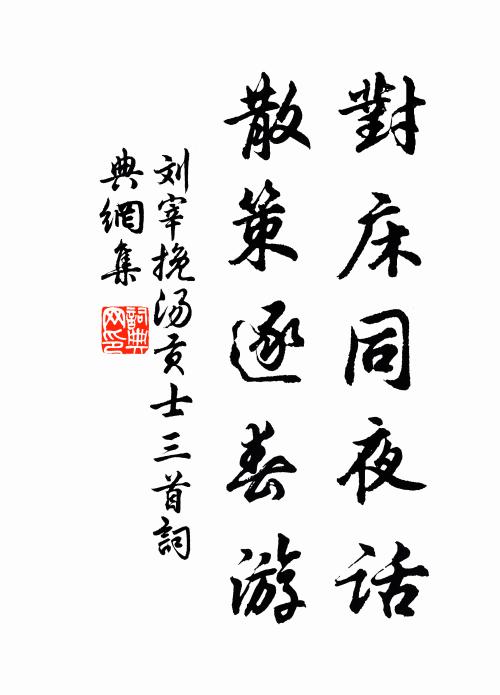 對床同夜话
散策逐春游
刘宰挽汤贡士三首詞
典網集
詞典
网印